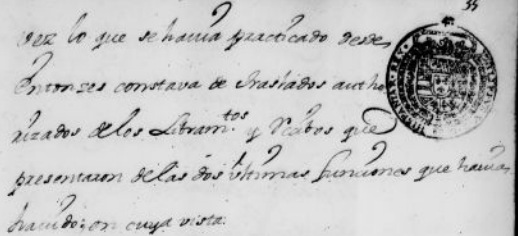 35
vez lo que se havia practicado desde
entonzes constava de traslados autho
rizados de los Libram.tos y Recibos que
presentaron de las dos ultimas funciones que havia
havido; en cuya vista
HISPANIARUM REX